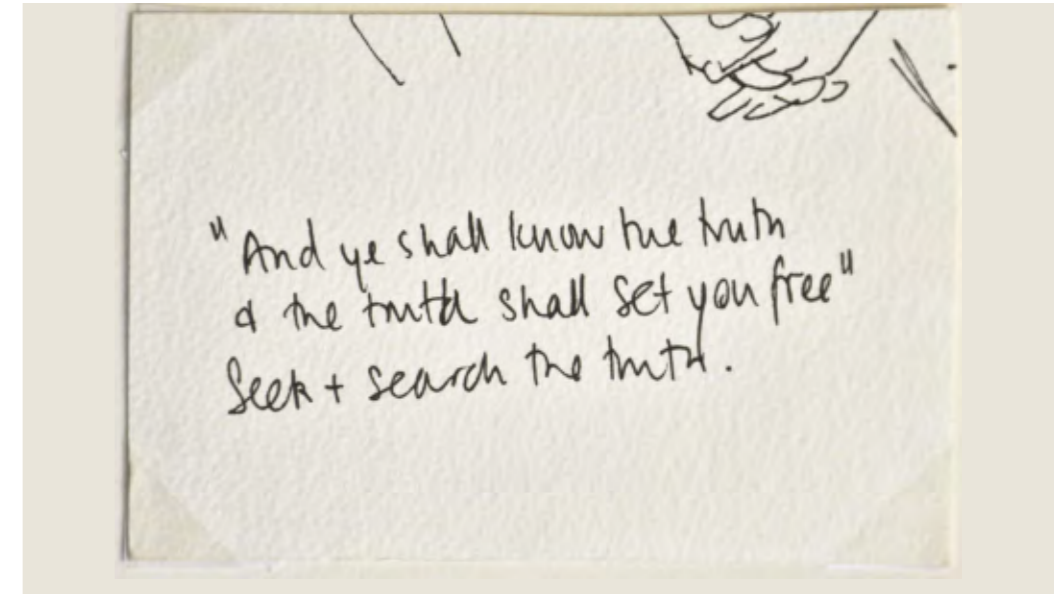 "And ye shall know the truth
& the truth shall set you free"
Seek + search the truth.